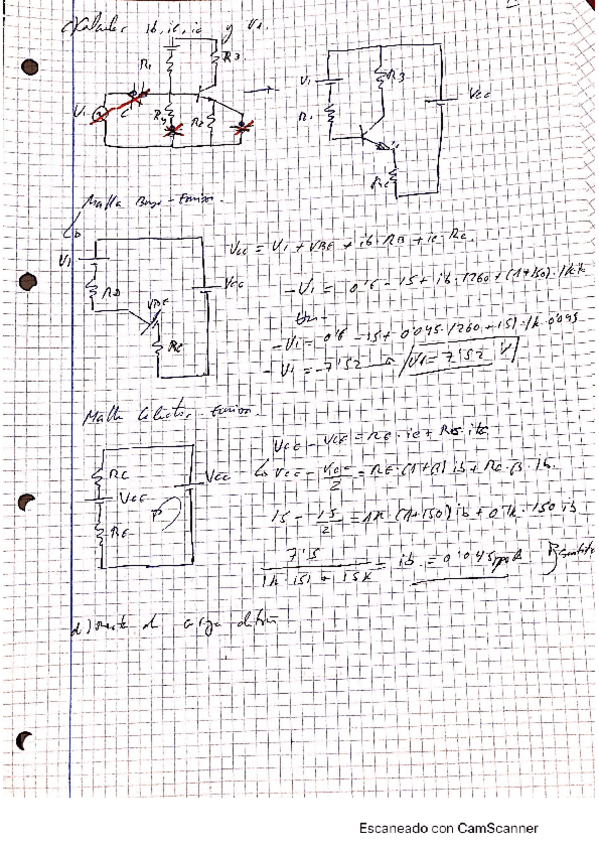 c) Calcular ib, ic, ie y V1
R1
R3
V1
C
R4
V1
R3
Vcc
R1
Re
Malla Base-Emisor.
V1
RB
VBE
Vcc
Re
Vcc = V1 + VBE + ib·RB + ie·Re.
-V1 = 0'6 - 15 + ib·1260 + (1+150)·1k·ib
-V1 = 0'6 - 15 + 0'045·1260 + 151·1k·0'045
-V1 = -7'52 → V1 = 7'52 V
Malla Colector-Emisor.
RC
VCE
RE
Vcc
Vcc - VCE = RE·ie + RC·ic
Vcc - Vcc/2 = RE·(1+B) ib + RC·B·ib.
15 - 15/2 = 1k·(1+150) ib + 0'1k·150 ib
7'5 / 1k·151 + 15k = ib = 0'045mA
d) recta de carga
Escaneado con CamScanner